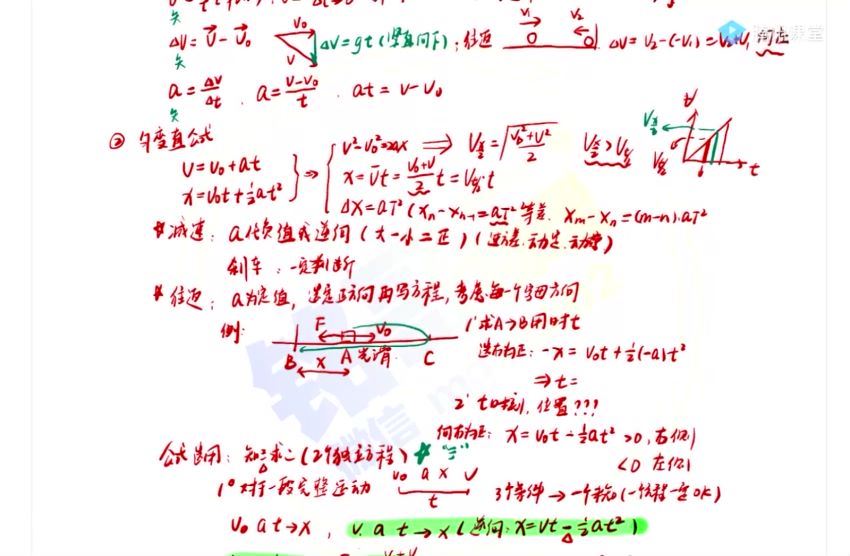 矢
ΔV = V⃗ - V⃗₀   V₀   V   ΔV=gt (竖直向下); 往返   V₁   V₂   ΔV = V₂-(-V₁) = V₂+V₁ 向左
矢
a = ΔV/Δt . a = (V-V₀)/t . at = V-V₀
矢
② 匀变直公式
V = V₀+at
x = V₀t+½at²
⇒
V²-V₀²=2ax ⇒ Vx/2 = √((V₀²+V²)/2)   Vx/2 > Vt/2
x = V̄t = (V₀+V)/2 t = Vt/2·t
Δx = aT² (xn-xn-1=aT² 等差. xm-xn=(m-n)·aT²
减速: a代负值或逆向 (大-小=正)
刹车: 一定判断
往返: a为定值, 选定正方向再写方程, 考虑每一个字母方向
例: F   V₀
B   x   A 光滑   C
1' 求A→B用时t
选右为正: -x = V₀t+½(-a)t²
⇒ t =
2' t时刻, 位置???
向右为正: x = V₀t-½at² >0, 右侧
<0 左侧
公式选用: 知三求二 (2个独立方程)
1° 对于一段完整运动   V₀ a x V   t   3个条件 →
V₀ a t → x , V. a t → x (逆向: x=Vt-½at²)